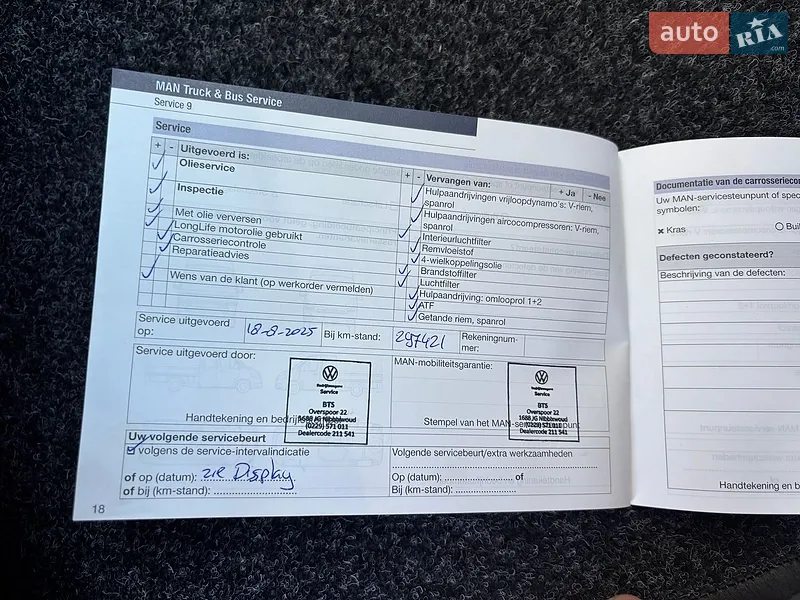 auto RIA .com
MAN Truck & Bus Service
Service 9
Service
+ - Uitgevoerd is:
Olieservice
Inspectie
Met olie verversen
LongLife motorolie gebruikt
Carrosseriecontrole
Reparatieadvies
Wens van de klant (op werkorder vermelden)
+ - Vervangen van: + Ja - Nee
Hulpaandrijvingen vrijloopdynamo's: V-riem,
spanrol
Hulpaandrijvingen aircocompressoren: V-riem,
spanrol
Interieurluchtfilter
Remvloeistof
4-wielkoppelingsolie
Brandstoffilter
Luchtfilter
Hulpaandrijving: omlooprol 1+2
ATF
Getande riem, spanrol
Service uitgevoerd
op: 18-8-2025 Bij km-stand: 297421 Rekeningnum-
mer:
Service uitgevoerd door:
Bedrijfswagens
Service
BTS
Overspoor 22
1688 JG Nibbixwoud
(0229) 571 011
Dealercode 211 541
Handtekening en
MAN-mobiliteitsgarantie:
Bedrijfswagens
Service
BTS
Overspoor 22
1688 JG Nibbixwoud
(0229) 571 011
Dealercode 211 541
Stempel van het
Uw volgende servicebeurt
volgens de service-intervalindicatie
of op (datum): zie Display
of bij (km-stand):
Volgende servicebeurt/extra werkzaamheden
Op (datum): of
Bij (km-stand):
18
Documentatie van de carrosseriecon
Uw MAN-servicesteunpunt of spec
symbolen:
× Kras O Bui
Defecten geconstateerd?
Beschrijving van de defecten:
Handtekening en b